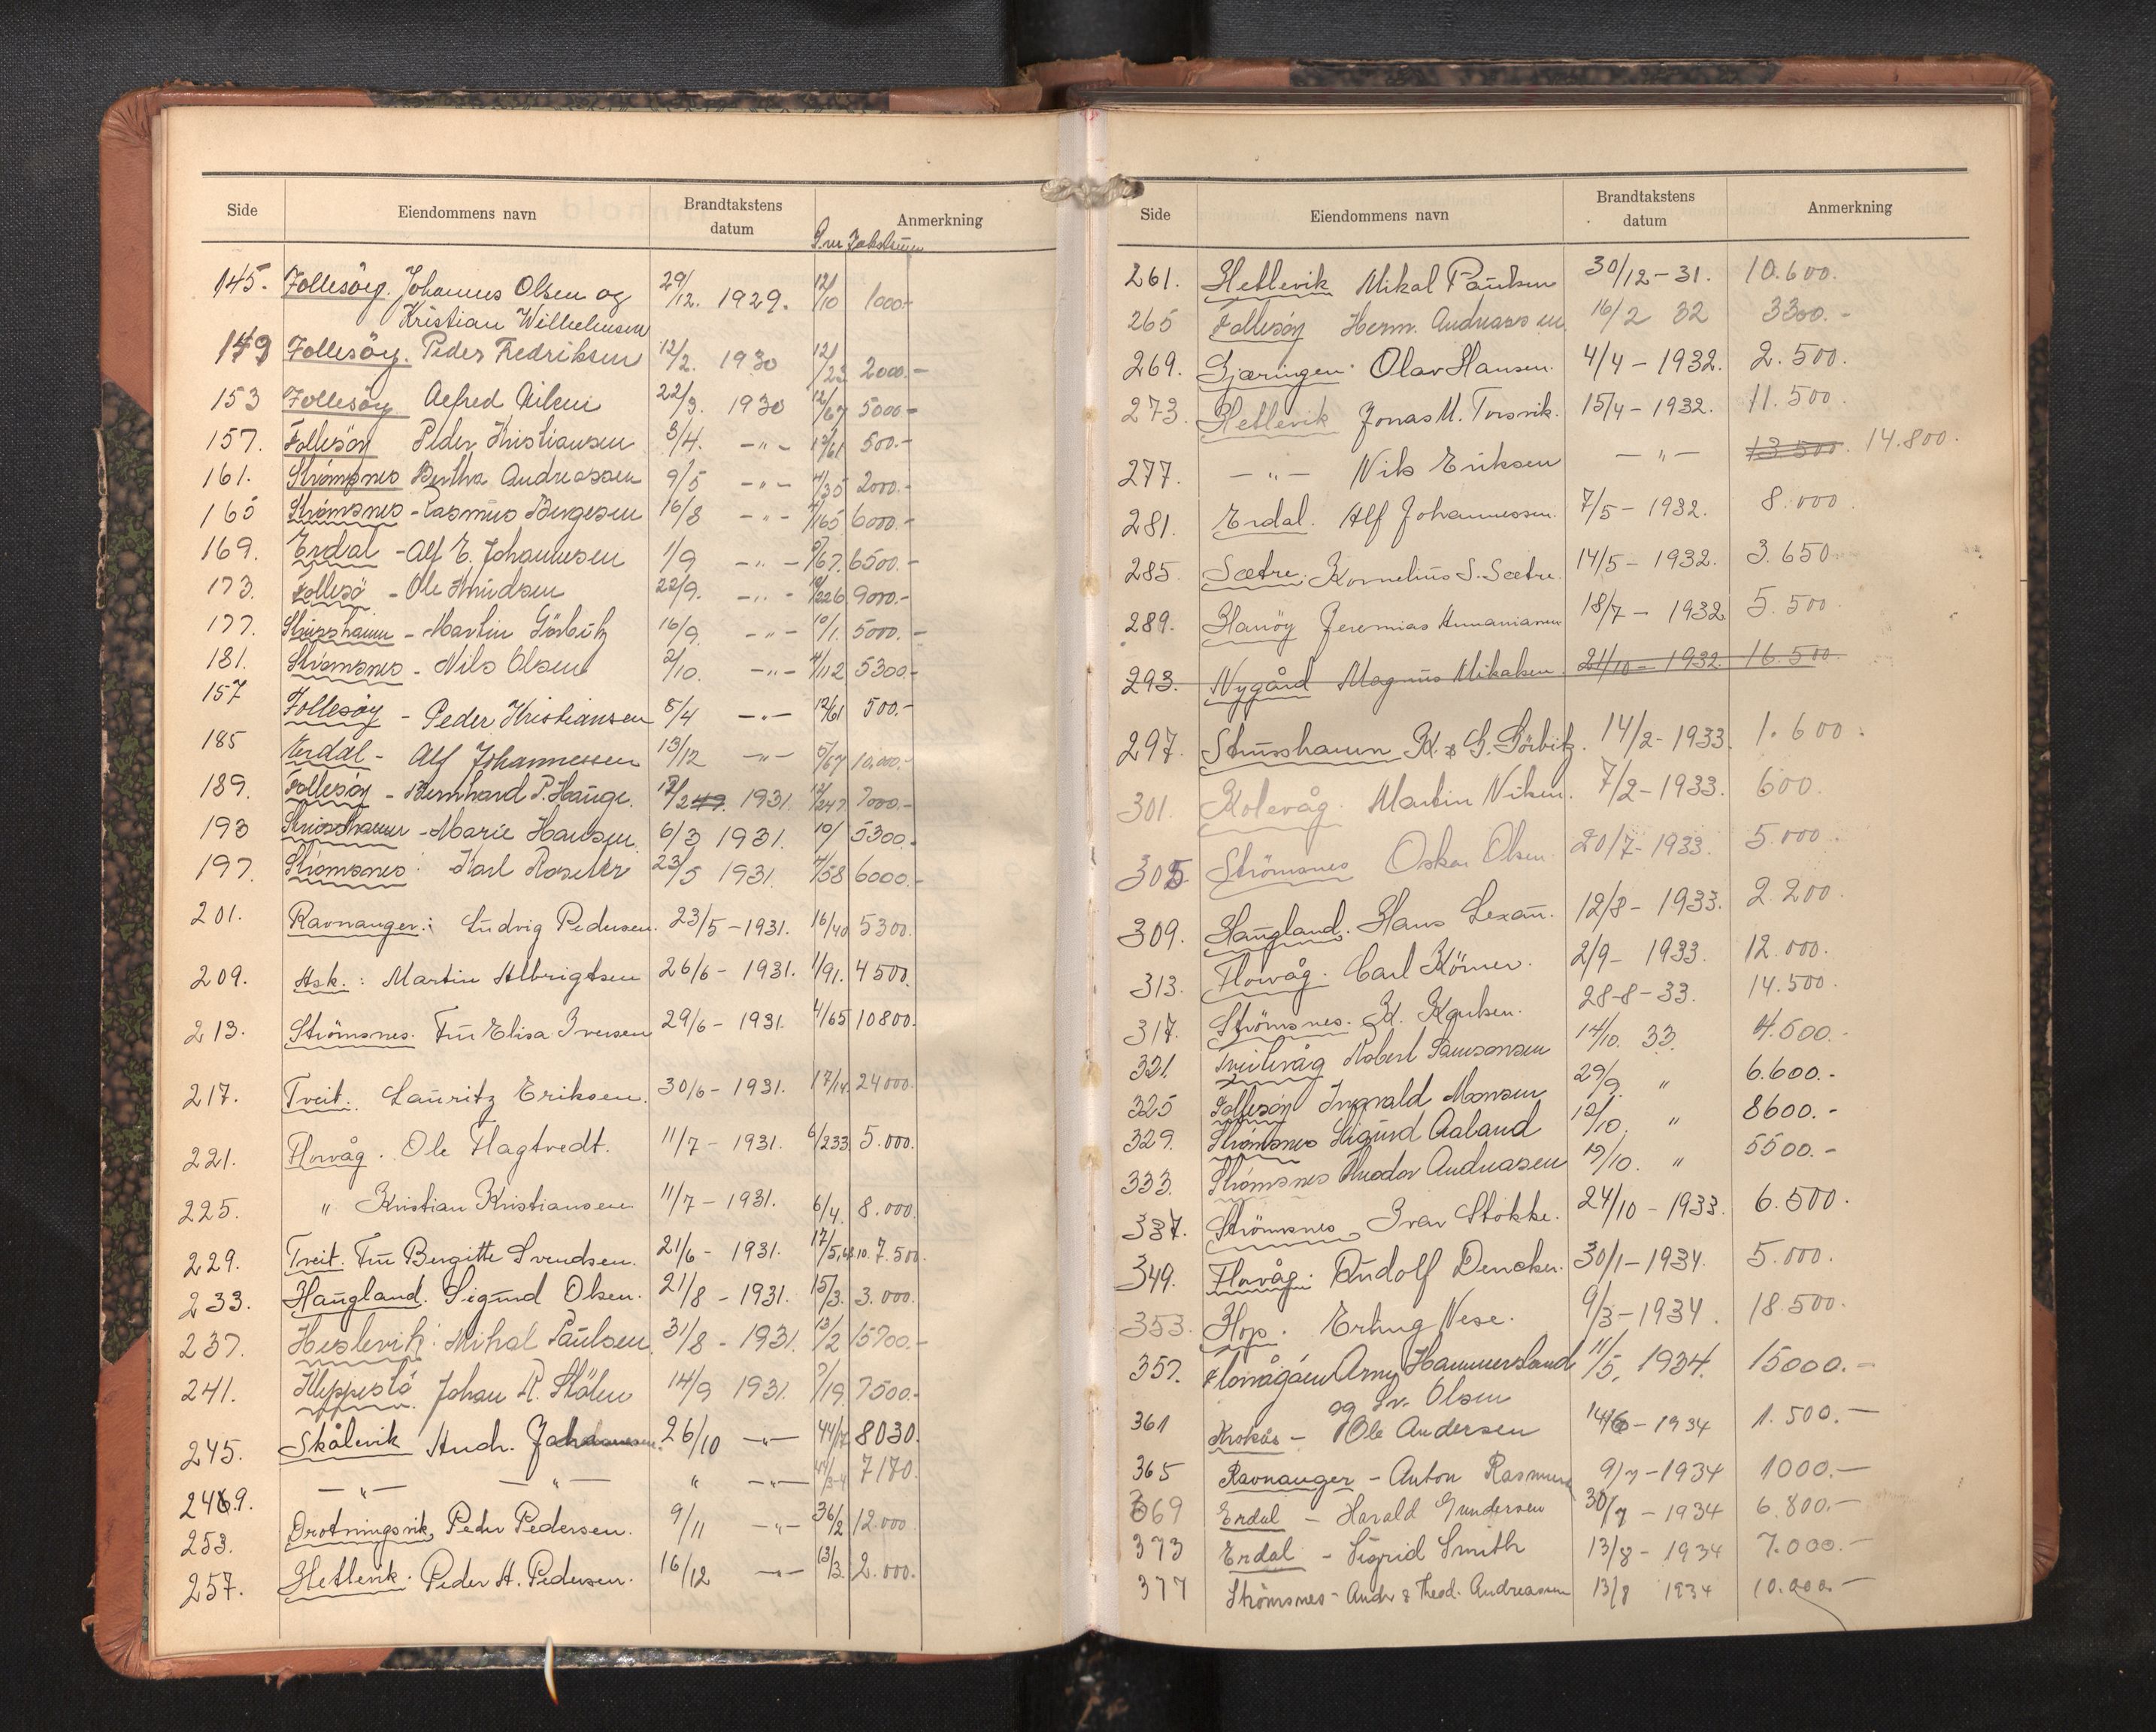 Side Eiendommens navn Brandtakstens datum Anmerkning
G.nr Takstsum
145. Follesöy. Johannes Olsen og 29/12. 1929. 12/10 1000.-
Kristian Wilhelmsen
149 Follesöy. Peder Fredriksen 12/2. 1930 12/22 2000.-
153 Follesöy Alfred Nilsen 22/3. 1930 12/67 5000.-
157. Follesöy Peder Kristiansen 3/4. -"- 12/61 500.-
161. Strömsnes Bertha Andreassen 9/5 -"- 4/35 2000.-
165 Strömsnes - Rasmus Bergesen 16/8 -"- 4/165 6000.-
169. Erdal - Alf E. Johannesen 1/9 -"- 5/67. 6500.-
173. Follesö - Ole Knudsen 22/9. -"- 12/226 9000.-
177. Strusshamn - Martin Görbitz 16/9. -"- 10/1. 5000.-
181. Strömsnes - Nils Olsen 2/10. -"- 4/112 5300.-
157 Follesöy - Peder Kristiansen 5/4 -"- 12/61 500.-
185 Erdal - Alf Johannessen 13/12 -"- 5/67 10,000.-
189. Follesöy - Bernhard P. Hauge. 12/2 1931. 12/247 7000.-
193 Strusshamn - Marie Hansen. 6/3 1931. 10/ 5300.-
197. Strömsnes: Karl 23/5 1931. 4/58 6000.-
201. Ravnanger: Ludvig Pedersen. 23/5 - 1931. 16/40 5300.
209. Ask.: Martin Albrigtsen 26/6 - 1931. 1/91. 4500.
213. Strömsnes. Fru Elisa Iversen 29/6 - 1931. 4/65 10800.
217. Tveit. Lauritz Eriksen. 30/6 - 1931. 17/14. 24000.
221. Florvåg. Ole Hagtvedt. 11/7 - 1931. 6/233 5.000.
225. " Kristian Kristiansen 11/7 - 1931. 6/4. 8.000.
229. Tveit. Fru Bergitte Svendsen. 21/6 - 1931. 17/5, 10. 7.500.
233. Haugland. Sigurd Olsen. 21/8 - 1931. 15/3. 3.000.
237. Heslevik: Mikal Paulsen. 31/8 - 1931. 13/2 15700.-
241. Kleppestö Johan R. Stölen 14/9 1931. 9/19 7500.-
245. Skålevik Andr. Johannessen. 26/10 -"- 44/7 8030.
249. -"- -"- " -"- 44/3-4 7170.
253. Drotningsvik, Peder Pedersen. 9/11 -"- 36/2 12.000
257. Hetlevik. Peder H. Pedersen. 16/12 -"- 13/3. 2.000.
Side Eiendommens navn Brandtakstens datum Anmerkning
261. Hetlevik Mikal Paulsen 30/12 - 31. 10.600.
265 Follesöy Herm. Andreassen 16/2 32 3300.-
269. Gjæringen. Olav Hansen. 4/4 - 1932. 2.500.
273. Hetlevik Jonas M. Torsvik. 15/4 - 1932. 11.500
277. -"- Nils Eriksen -"- 13.500. 14.800.
281. Erdal. Alf Johannessen. 7/5 - 1932. 8.000
285. Sætre. Kornelius S. Sætre. 14/5 - 1932. 3.650.
289. Hanöy Jeremias 18/7 - 1932. 5.500
293. Nygård Magnus Mikalsen. 21/10 - 1932. 16.500.
297. Strusshamn K. & G. Görbitz. 14/2 - 1933. 1.600.
301. Kolevåg. Martin Nilsen. 7/2 - 1933. 600.
305 Strömsnes Oskar Olsen 20/7 - 1933. 5.000.
309. Haugland. Hans Lexau. 12/8 - 1933. 2.200.
313. Florvåg. Carl Körner. 2/9 - 1933. 12.000.
317. Strömsnes. K. 28-8-33. 14.500.
321. Tveitevåg Robert Samsonsen 14/10. 33. 4.500.-
325 Follesöy Ingvald Monsen 29/9. " 6.600.-
329. Strömsnes Sigurd Aaland 12/10. " 8600.-
333. Strömsnes Theodor Andreasen 19/10. " 5500.-
337. Strömsnes Ivar Stokke. 24/10 - 1933. 6.500.
349. Florvåg. Rudolf Dencker. 30/1 - 1934. 5.000.
353. Hop. Erling Nese. 9/3 - 1934. 18.500.
357. Florvågöen Arne Hammersland 11/5, 1934. 15000.-
og Sv. Olsen
361 Krokås - Ole Andersen 14/6 - 1934 1.500.-
365 Ravnanger - Anton Rasmus 9/7 - 1934 1000.-
369 Erdal - Harald Gundersen 30/7 - 1934 6.800.-
373 Erdal - Sigrid Smith 13/8 - 1934 7.000.-
377 Strömsnes - Andr & Theod. Andreassen 13/8 1934 10.000.-